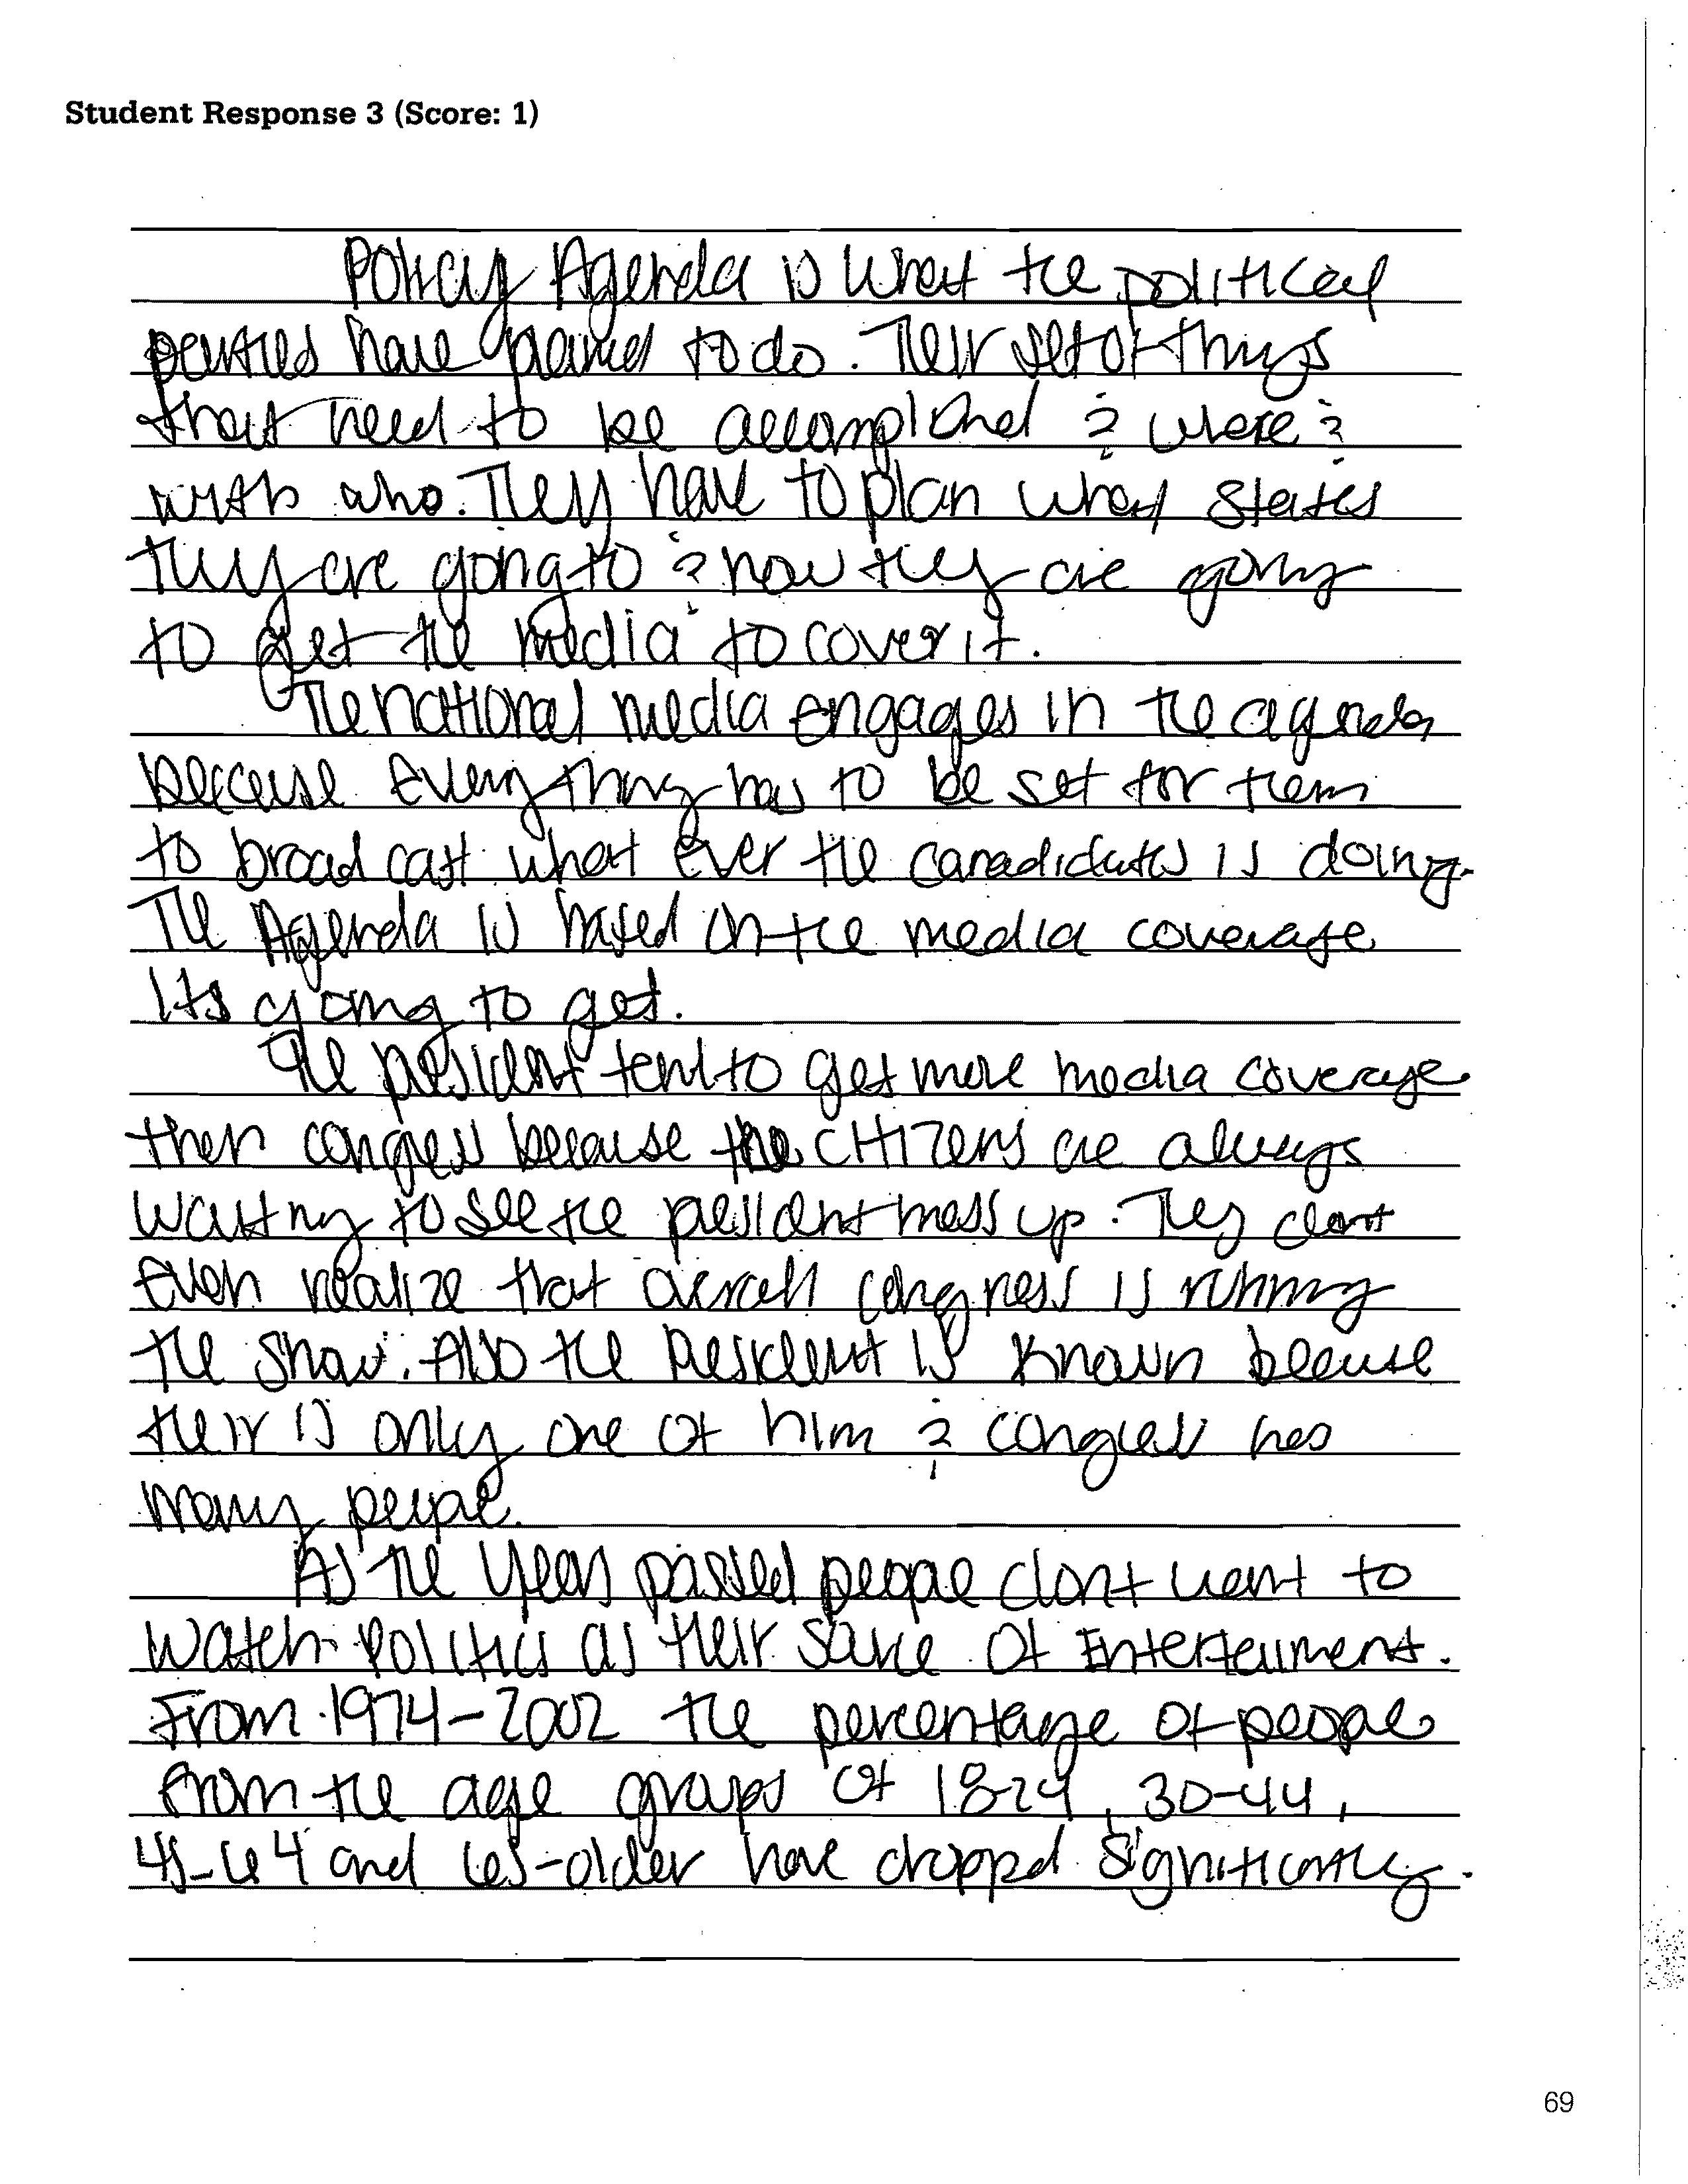 Student Response 3 (Score: 1)
Policy Agenda is what the political
parties have planned to do. Their set of things
that need to be accomplished & where &
with who. They have to plan what states
they are going to & how they are going
to get the media to cover it.
The national media engages in the agenda
because everything has to be set for them
to broad cast what ever the canadidates is doing.
The Agenda is based on the media coverage
its going to get.
The president tend to get more media coverage
then congress because the citizens are always
waiting to see the president mess up. They dont
even realize that overall congress is running
the show. Also the President is known because
their is only one of him & congress has
many people.
As the years passed people dont want to
watch politics as their source of Entertainment.
From 1974-2002 the percentage of people
from the age groups of 18-24, 30-44,
45-64 and 65-older have dropped significantly.
69